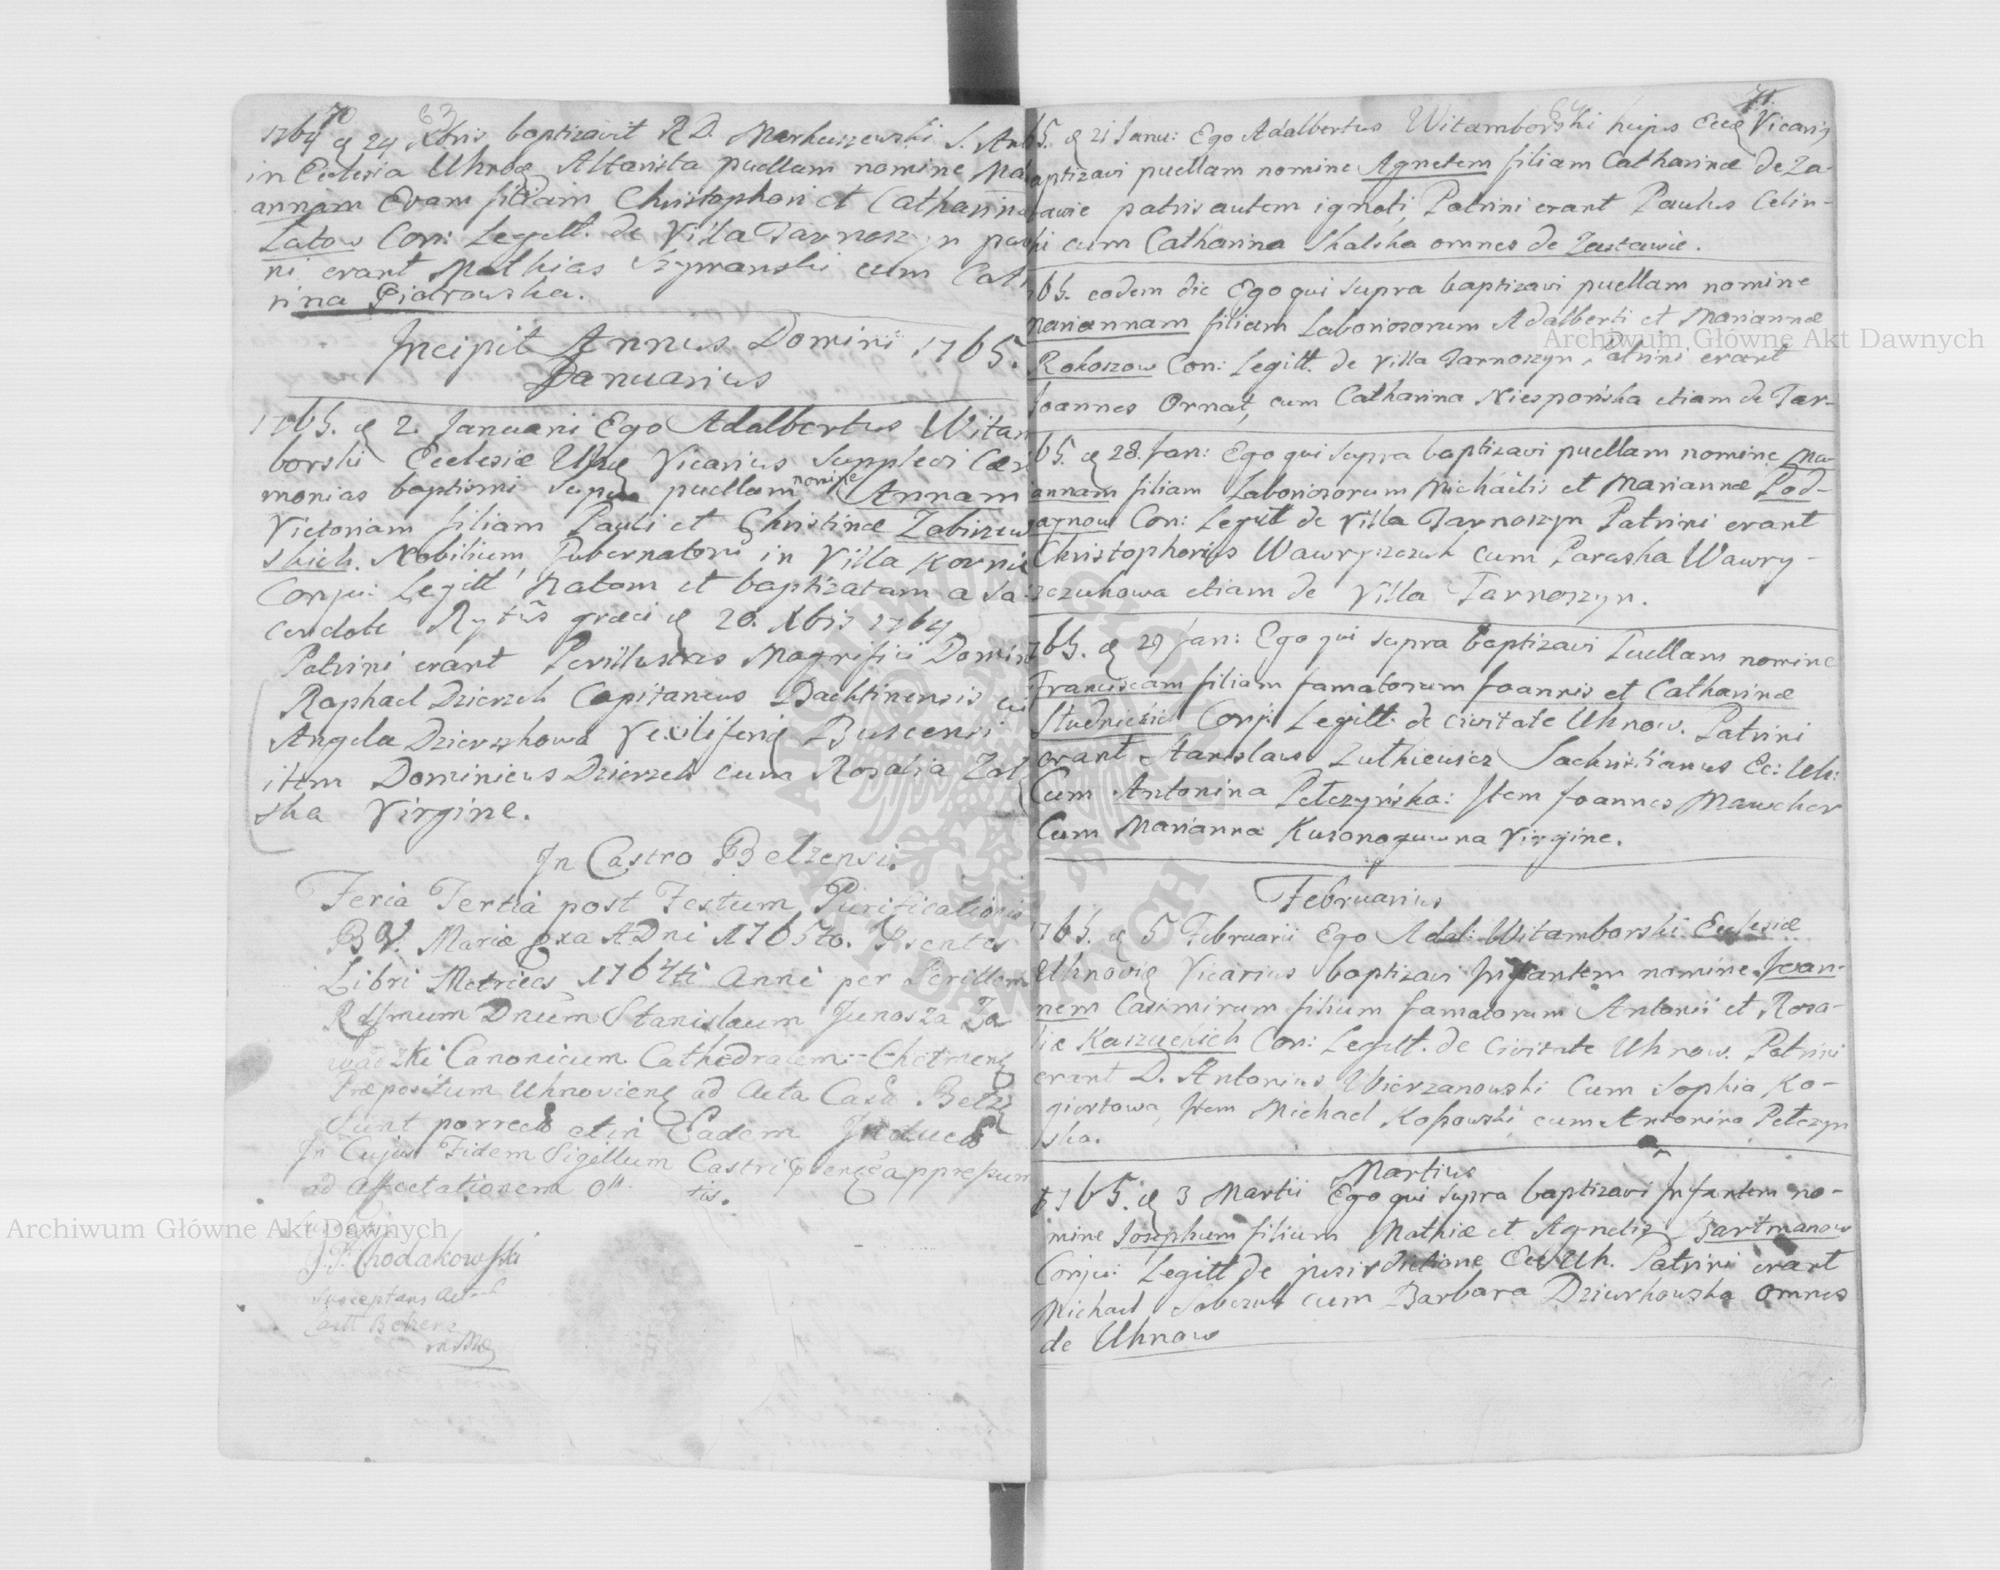 70 63
1764 d 24 Xbris baptizavit R D. Markuszewski S. An
in Ecclesia Uhnov Altarista puellam nomine Ma
annam Evam filiam Christophori et Catharina
Latow Con: Legitt. de Villa Tarnoszyn pa
ni erant Mathias Szymanski cum Cat
rina Piotrowska.
Incipit Annus Domini 1765.
Januarius
1765. d 2. Januarii Ego Adalbertus Witam
borski Ecclesiæ Uhn Vicarius supplevi Cær
monias baptismi super puellam nomine Annam
Victoriam filiam Pauli et Christinæ Zabirzew
skich. Nobilium, Gubernatoris in Villa Korni
Conju: Legitt natam et baptizatam a Sa
cerdote Rytus græci d 20. Xbris 1764
Patrini erant Perillustres Magnifici Domin
Raphael Dzierzek Capitaneus Dachtinensis cu
Angela Dzierzkowa Vexiliferi Buscensi
item Dominicus Dzierzek cum Rosalia Zal
ska Virgine.
In Castro Belzensi.
Feria Tertia post Festum Purificationis
B V. Mariæ pxa A Dni 1765to. Psentes
Libri Metrices 1764ti Anni per Perillem
Rssmum Dnum Stanislaum Junosza Za
wadzki Canonicum Cathedralem Chelmens
Præpositum Uhnoviens ad Acta Castr Belz
Sunt porrecti et in Eadem Inducti
In Cujus Fidem Sigillum Castri psens est appressum
ad affectationem Offtis.
J. P. Chodakowski
Susceptans Act
Castr Belzens
mppa
64 71.
65. d 21 Janu: Ego Adalbertus Witamborski hujus Eccl Vicariꝯ
aptizavi puellam nomine Agnetem filiam Catharinæ de Za-
tawie patris autem ignoti, Patrini erant Paulus Celin-
ki cum Catharina Skalska omnes de Zastawie.
765. eodem die Ego qui supra baptizavi puellam nomine
Mariannam filiam Laboriosorum Adalberti et Mariannæ
Rokoszow Con: Legitt. de Villa Tarnoszyn, Patrini erant
Joannes Ornat, cum Catharina Niespońska etiam de Tar-
65. d 28. Jan: Ego qui supra baptizavi puellam nomine Ma-
annam filiam Laboriosorum Michaëlis et Mariannæ Pod-
agnow Con: Legitt de Villa Tarnoszyn Patrini erant
Christophorus Wawryszczuk cum Paraska Wawry-
szczukowa etiam de Villa Tarnoszyn.
765. d 29 Jan: Ego qui supra baptizavi Puellam nomine
Franciscam filiam famatorum Joannis et Catharinæ
Studnickich Conju Legitt. de civitate Uhnow. Patrini
erant Stanislaus Zuthiewicz Sachristianus Ec: Uh:
Cum Antonina Pełczyńska: Item Joannes Mauscher
Cum Marianna Kusonozuwna Virgine.
Februarius
1765. d 5 Februarii Ego Adal: Witamborski Ecclesiæ
Uhnovi Vicarius baptizavi Infantem nomine Joan-
nem Casimirum filium famatorum Antonii et Rosa-
liæ Kaszuckich Con: Legitt. de Civitate Uhnow. Patrini
erant D. Antonius Wierzanowski Cum Sophia Ko-
giertowa, Item Michael Kossowski cum Antonina Pełczyn
ska.
Martius
1765. d 3 Martii Ego qui supra baptizavi Infantem no-
mine Josephum filium Mathiæ et Agnetis Bartmanow
Conju: Legitt de jurisdictione Eccl Uh. Patrini erant
Michael Sobczuk cum Barbara Dziurkowska omnes
de Uhnow
Archiwum Główne Akt Dawnych
Archiwum Główne Akt Dawnych
ARCHIWUM GŁÓWNE AKT DAWNYCH